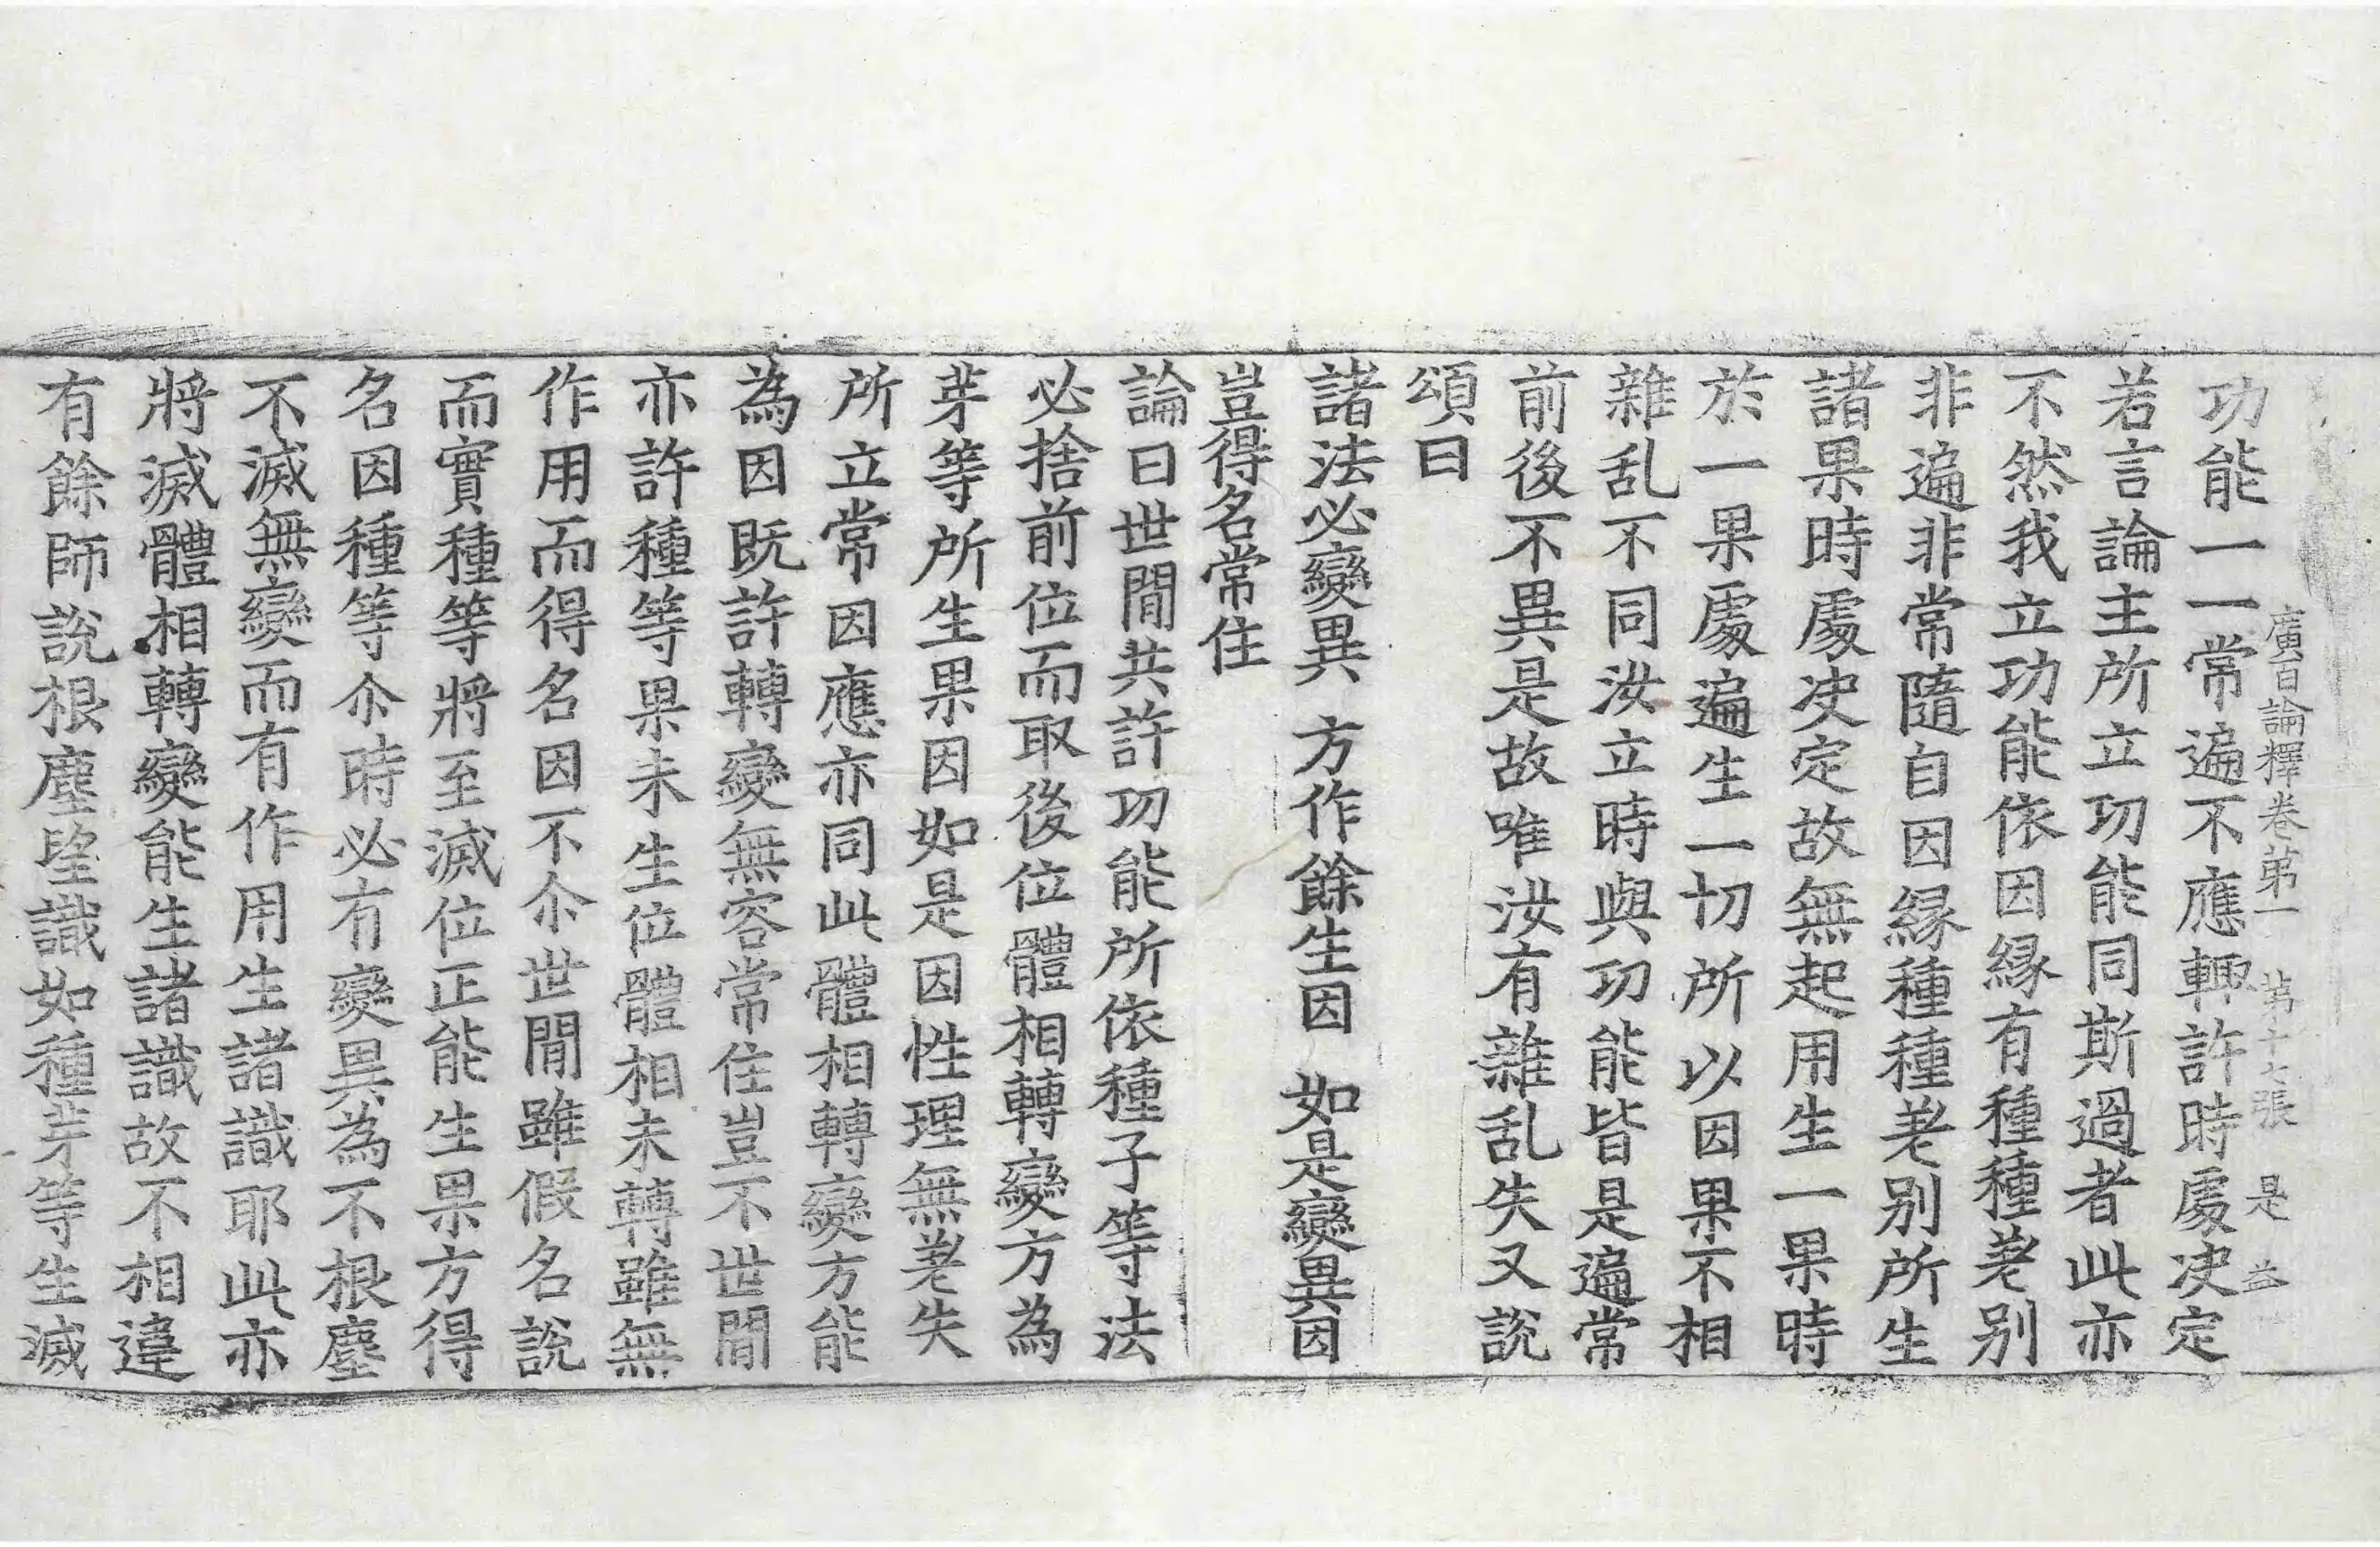 廣百論釋卷第一 第十七張 是
功能一一常遍不應輙許時處决定
若言論主所立功能同斯過者此亦
不然我立功能依因緣有種種差别
非遍非常隨自因緣種種差别所生
諸果時處决定故無起用生一果時
於一果處遍生一切所以因果不相
雜乱不同汝立時與功能皆是遍常
前後不異是故唯汝有雜乱失又說
頌曰
諸法必變異 方作餘生因 如是變異因
豈得名常住
論曰世間共許功能所依種子等法
必捨前位而取後位體相轉變方為
芽等所生果因如是因性理無差失
所立常因應亦同此體相轉變方能
為因既許轉變無容常住豈不世間
亦許種等果未生位體相未轉雖無
作用而得名因不尒世間雖假名說
而實種等將至滅位正能生果方得
名因種等尒時必有變異為不根塵
不滅無變而有作用生諸識耶此亦
將滅體相轉變能生諸識故不相違
有餘師說根塵望識如種芽等生滅